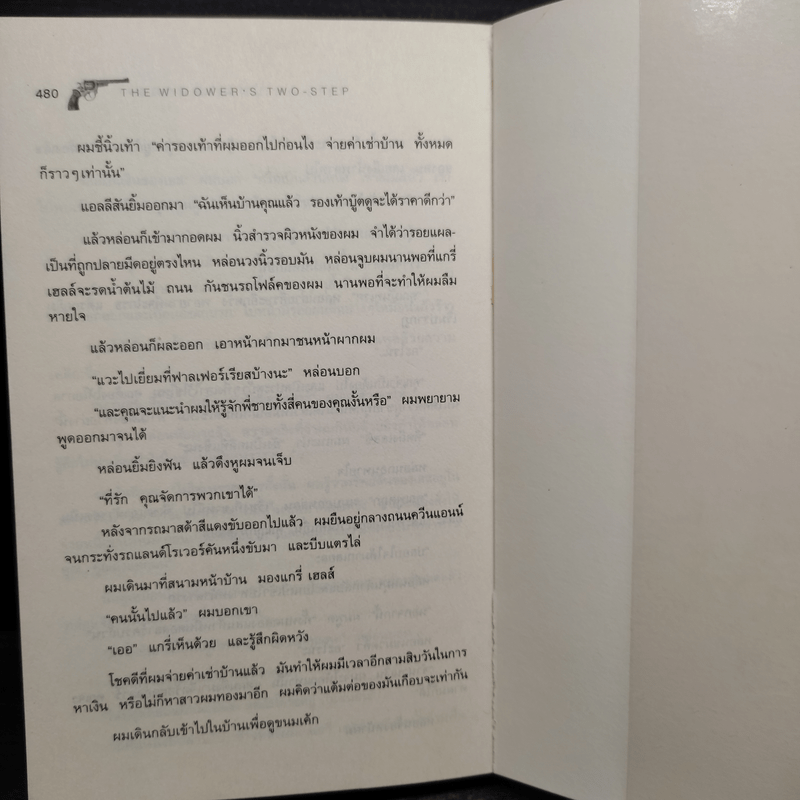 480 THE WIDOWER'S TWO-STEP
ผมชี้นิ้วเท้า “ค่ารองเท้าที่ผมออกไปก่อนไง จ่ายค่าเช่าบ้าน ทั้งหมด
ก็ราวๆ เท่านั้น”
แอลลีสันยิ้มออกมา “ฉันเห็นบ้านคุณแล้ว รองเท้าบู๊ตดูจะได้ราคาดีกว่า”
แล้วหล่อนก็เข้ามากอดผม นิ้วสำรวจผิวหนังของผม จำได้ว่ารอยแผล-
เป็นที่ถูกปลายมีดอยู่ตรงไหน หล่อนวงนิ้วรอบมัน หล่อนจูบผมนานพอที่แกรี่
เฮลส์จะรดน้ำต้นไม้ ถนน กันชนรถโฟล์คของผม นานพอที่จะทำให้ผมลืม
หายใจ
แล้วหล่อนก็ผละออก เอาหน้าผากมาชนหน้าผากผม
“แวะไปเยี่ยมที่ฟาลเฟอร์เรียสบ้างนะ” หล่อนบอก
“และคุณจะแนะนำผมให้รู้จักพี่ชายทั้งสี่คนของคุณงั้นหรือ” ผมพยายาม
พูดออกมาจนได้
หล่อนยิ้มยิงฟัน แล้วดึงหูผมจนเจ็บ
“ที่รัก คุณจัดการพวกเขาได้”
หลังจากรถมาสด้าสีแดงขับออกไปแล้ว ผมยืนอยู่กลางถนนควีนแอนน์
จนกระทั่งรถแลนด์โรเวอร์คันหนึ่งขับมา และบีบแตรไล่
ผมเดินมาที่สนามหน้าบ้าน มองแกรี่ เฮลส์
“คนนั้นไปแล้ว” ผมบอกเขา
“เออ” แกรี่เห็นด้วย และรู้สึกผิดหวัง
โชคดีที่ผมจ่ายค่าเช่าบ้านแล้ว มันทำให้ผมมีเวลาอีกสามสิบวันในการ
หาเงิน หรือไม่ก็หาสาวผมทองมาอีก ผมคิดว่าแต้มต่อของมันเกือบจะเท่ากัน
ผมเดินกลับเข้าไปในบ้านเพื่อดูขนมเค้ก